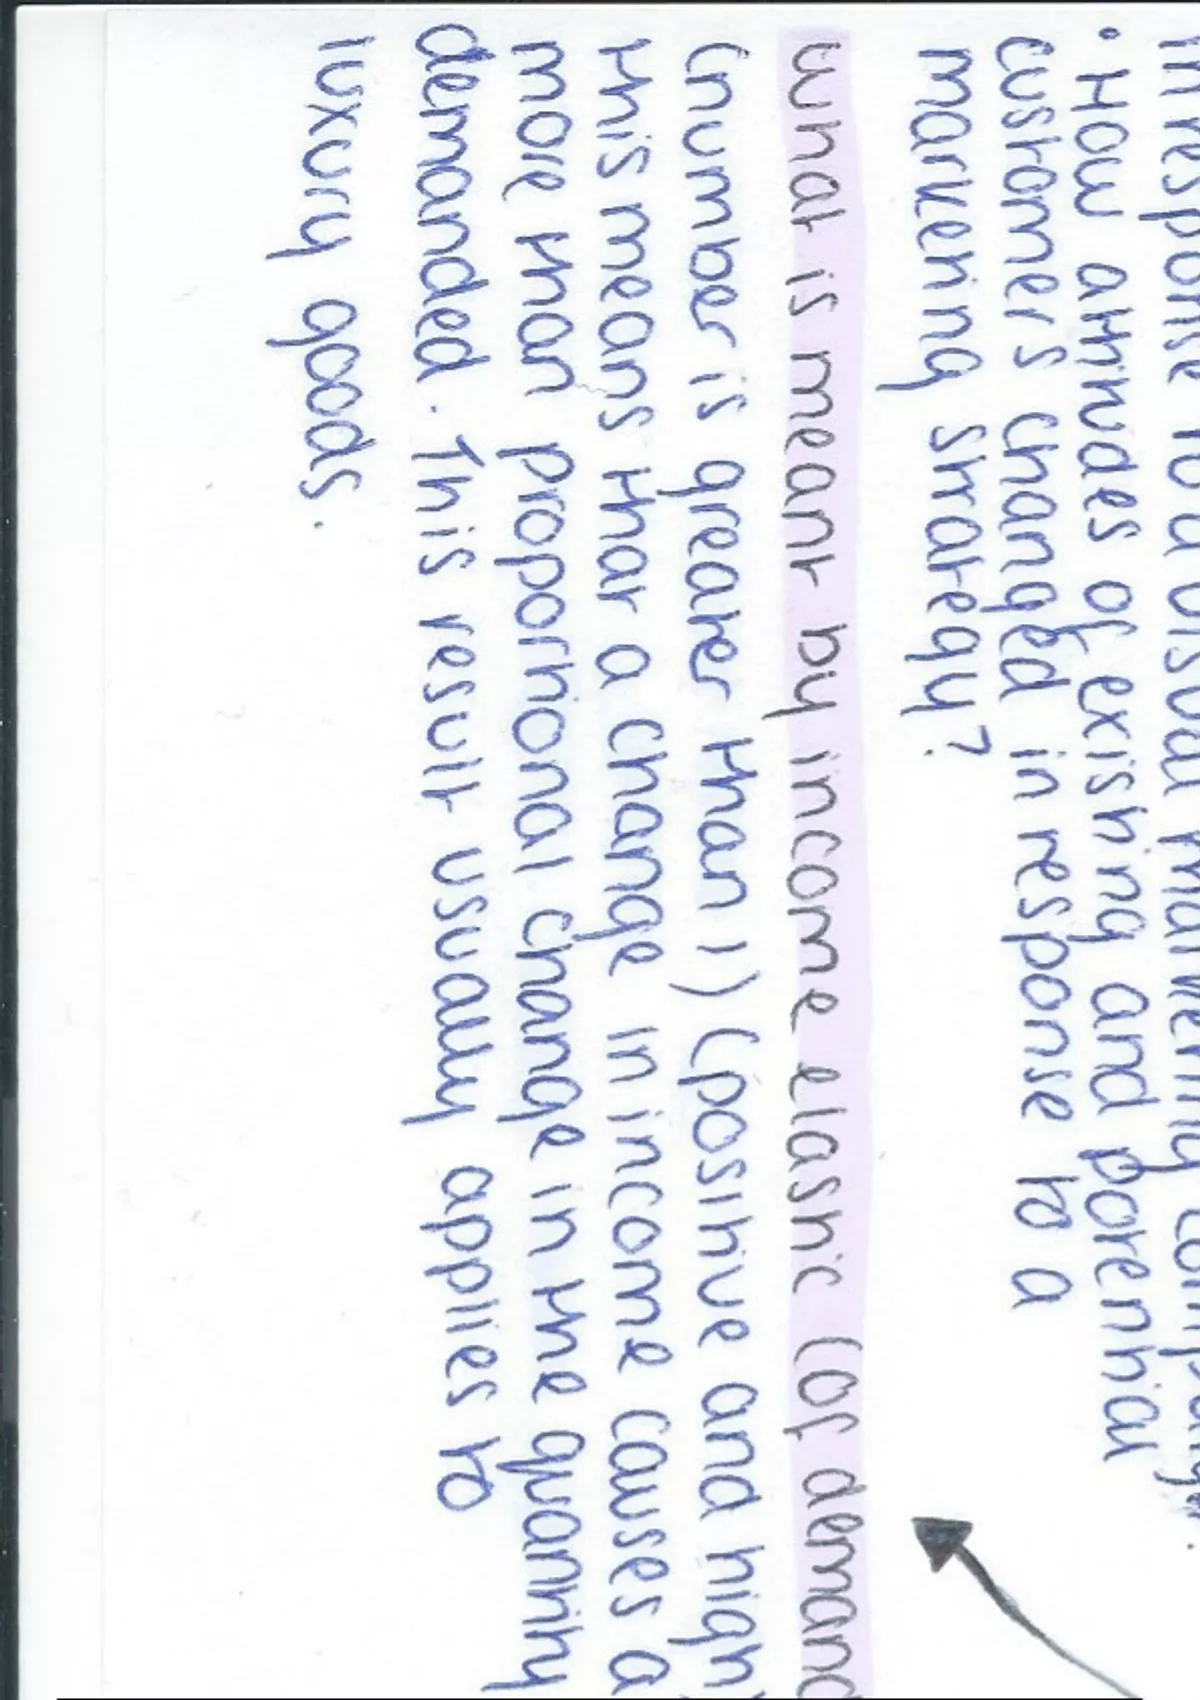 in response to a visual marketing campaign.
• How attitudes of existing and potential
customers changed in response to a
marketing strategy?
what is meant by income elastic (of demand
(number is greater than 1) (positive and high)
this means that a change in income causes a
more than proportional change in the quantity
demanded. This result usually applies to
luxury goods.